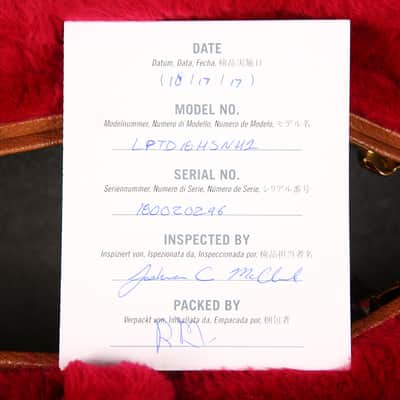 DATE
Datum, Data, Fecha, 検品実施日
(10/17/17)
MODEL NO.
Modelnummer, Numero di Modello, Número de Modelo, モデル名
LPTD18HSNH1
SERIAL NO.
Seriennummer, Numero di Serie, Número de Serie, シリアル番号
180020246
INSPECTED BY
Inspiziert von, Ispezionata da, Inspeccionada por, 検品担当者名
C
PACKED BY
Verpackt von, Imballata da, Empacada por, 梱包者